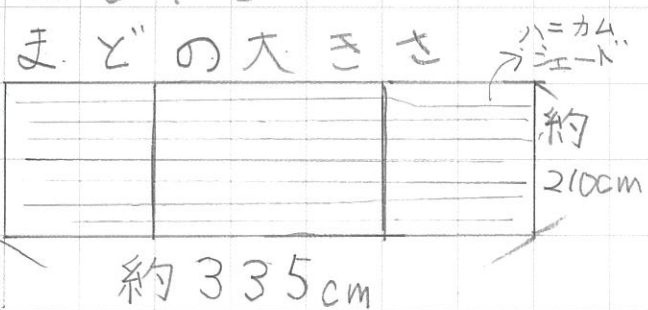 まどの大きさ
ハニカム
シェード
約
210cm
約335cm